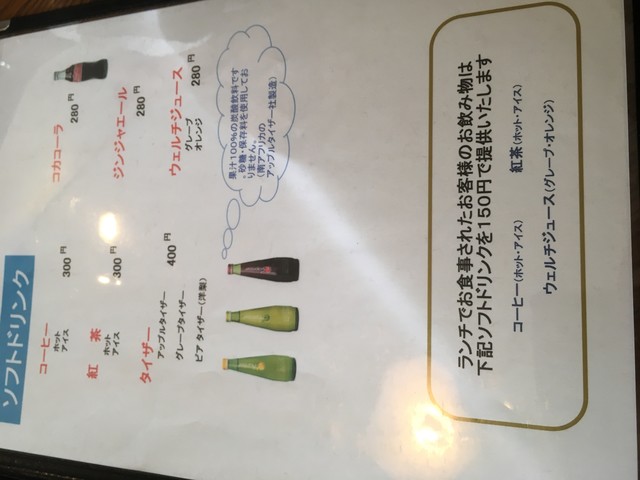 ソフトドリンク
コーヒー
ホット
アイス
300円
コカコーラ
280円
紅 茶
ホット
アイス
300円
ジンジャエール
280円
タイザー
アップルタイザー
400円
グレープタイザー
ピア タイザー(洋梨)
ウェルチジュース
グレープ
オレンジ
280円
果汁100%の炭酸飲料です
・砂糖・保存料を使用してお
りません。
(南アフリカの
アップルタイザー社製造)
ランチでお食事されたお客様のお飲み物は
下記ソフトドリンクを150円で提供いたします
コーヒー(ホット・アイス) 紅茶(ホット・アイス)
ウェルチジュース(グレープ・オレンジ)